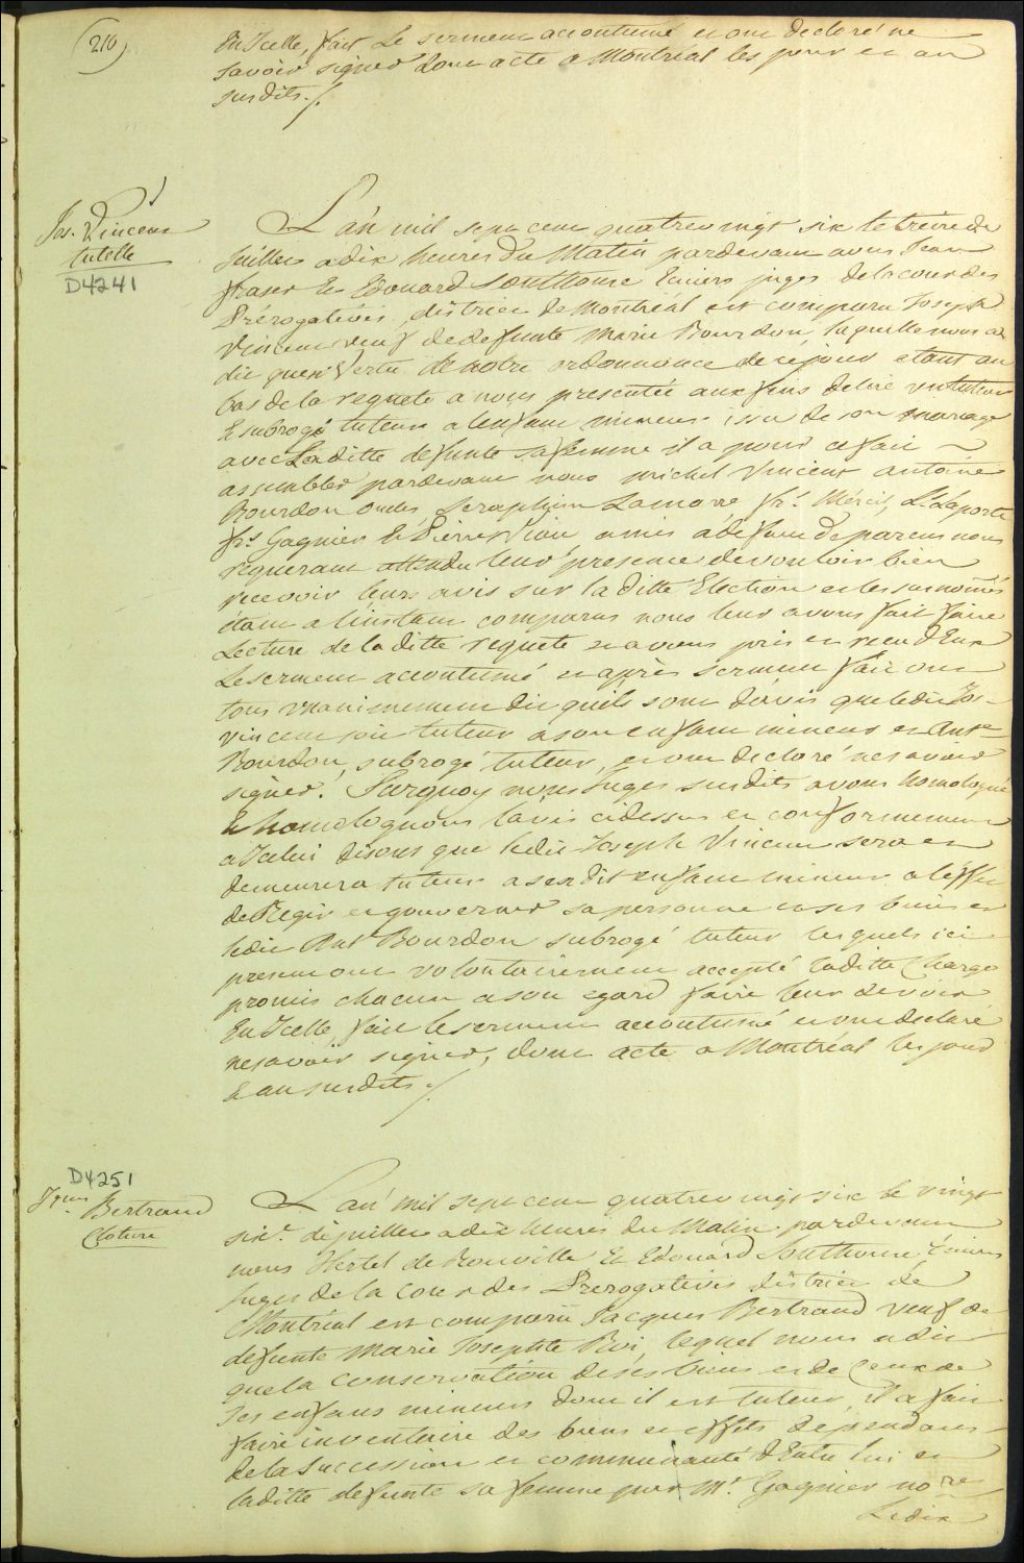 (210)
En Icelle, fait Le serment accoutumé et ont declaré ne
savoir signer dont acte a Montréal les jour et an
susdits ./.
Jos. Vincent
tutelle
D4241
L'an mil sept cent quatrevingt six le treize de
Juillet a dix heures du Matin pardevant nous Jean
fraser Et Edouard Southouse Ecuiers juges de la cour des
Prérogatives, district de Montréal est comparu Joseph
Vincent veuf de defunte Marie Bourdon, laquelle nous a
dit quen Vertu de notre ordonnance de ce jour etant au
bas de la requete a nous presentée aux fins delire un tuteur
& subrogé tuteur a lenfant mineur issu de son mariage
avec Laditte defunte sa femme il a pour ce fait
assembler pardevant nous michel Vincent antoine
Bourdon oncles Seraphim Lamorre fr.s Mércil, Lt Laporte
fr.s Gagnier & Pierre Viau amis a défaut de parens nous
requerant attendu leur presence de vouloir bien
recevoir leurs avis sur la ditte Election et les susnomés
étant a linstant comparus nous leur avons fait faire
Lecture de la ditte requete et avons pris et recu d'Eux
Le serment accoutumé et après serment fait ont
tous unanimement dit quils sont davis que ledit Jos-
vincent soit tuteur a son enfant mineur et Ant.e
Bourdon, subrogé tuteur, et ont declaré ne savoir
signer. Surquoy nous Juges susdits avons homologué
& homologuons lavis cidessus et conformement
a Icelui disons que ledit Joseph Vincent sera et
demeurera tuteur a sesdit enfant mineur a léffet
de Regir et gouverner sa personne et ses biens et
ledit Ant Bourdon subrogé tuteur lesquels ici
present ont volontairement accepté laditte Charge
promis chacun a son egard faire leur devoir
En Icelle, fait le serment accoutumé et ont declaré
ne savoir signer, dont acte a Montréal les jour
& an susdits ./
D4251
Jques Bertrand
Cloture
L'an mil sept cent quatrevingt six le vingt
six.e de juillet a dix heures du Matin pardevant
nous Hertel de Rouville Et Edouard Southouse Ecuiers
Juges de la Cour des Prerogatives district de
Montréal est comparu Jacques Bertrand veuf de
defunte Marie Josephte Roi, lequel nous a dit
que la conservation de ses biens et de Ceux de
ses enfans mineurs dont il est tuteur, il a fait
faire inventaire des biens et effets dependans
de la Succession et communauté d'Entre lui et
laditte defunte sa femme par M.r Gagnier no.re
Ledix